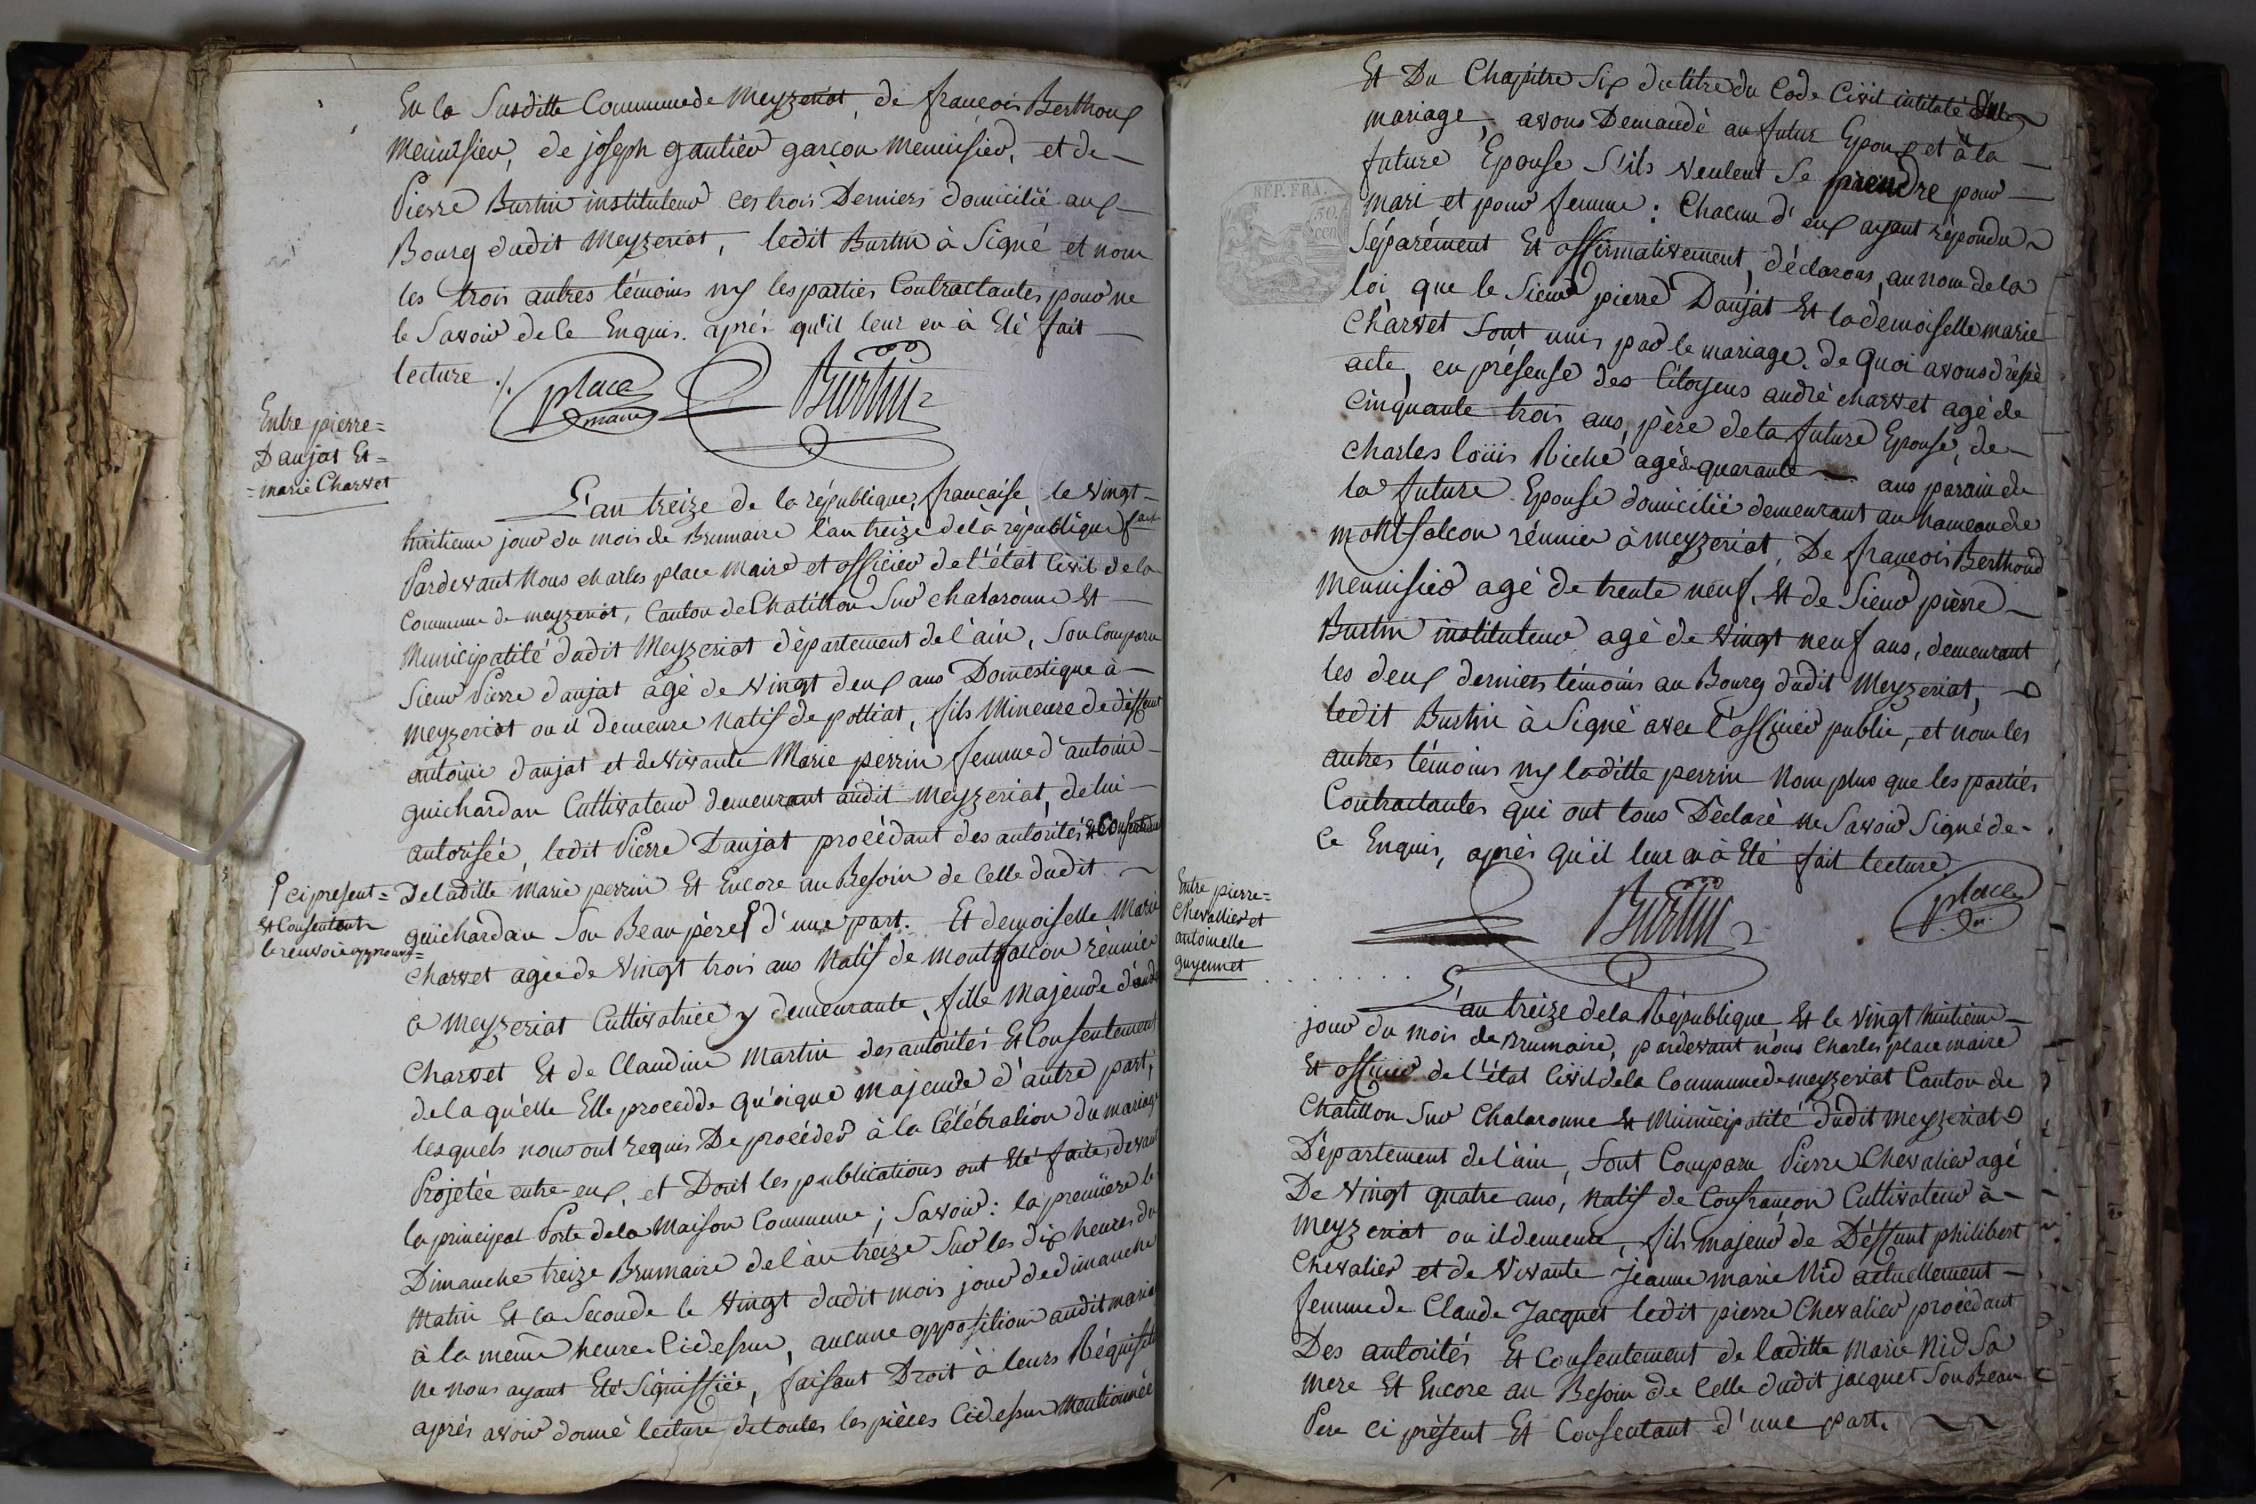 En la Susditte Commune de Meyzeriat, de francois Berthoux
Menuisier, de joseph gautier garcon Menuisier, et de
Pierre Burtin instituteur ces trois Derniers domicilié aux
Bourg dudit Meyzeriat, ledit Burtin à Signé et nom
les trois autres témoins ny les parties Contractantes pour ne
le Savoir de ce Enquis. aprés qu'il leur en à Eté fait
lecture ./.
place
maire
Burtin
Entre pierre=
Daujat Et=
=marie Charvet
L'an treize de la république francaise le vingt
huitieme jour du mois de Brumaire l'an treize de la république
Pardevant Nous charles place Maire et officier de l'état Civil de la
Commune de meyzeriat, Canton de Chatillon Sur chalaronne Et
Municipatité dudit Meyzeriat département de l'ain, Son Comparu
Sieur Pierre daujat agé de vingt deux ans Domestique à
Meyzeriat ou il demeure Natif de polliat, fils Mineure de déffunt
antoine daujat et de vivante Marie perrin femme d'antoine
guichardan Cultivateur demeurant audit Meyzeriat, de lui
autorisée, ledit Pierre Daujat procédant des autorités et Consentement
De laditte Marie perrin Et Encore au Besoin de Celle dudit
guichardan Son Beau pére d'une part. Et demoiselle Marie
ci present=
et Consentent
le renvoie approuvé=
Charvet agée de vingt trois ans Natif de montfalcon réunier
a Meyzeriat Cultivatrice y demeurante, fille Majeure d'andré
Charvet Et de Claudine Martin des autorités Et Consentement
de la qu'elle Elle procedde qu'oique majeure d'autre part,
lesquels nous ont requis De procéder à la Célébration du mariage
Projetée entre eux, et Dont les publications ont Eté faite devant
la principal Porte de la Maison Commune ; Savoir : la premiere le
Dimanche treize Brumaire de l'an treize Sur les dix heures du
Matin Et la Seconde le vingt dudit mois jour de dimanche
à la même heure Cidessu, aucune opposition audit mariage
Ne nous ayant Eté Signiffiée, faisant Droit à leurs Réquisition
aprés avoir donné lecture de toutes les piéces Cidessu Mentionnée
Et Du Chapitre Six du titre du Code Civil intitulé Du
mariage, avons Demandé au futur Epoux et à la
future Epouse S'ils veulent Se prendre pour
mari et pour femme : Chacun d'eux ayant répondu
Séparément Et affirmativement, déclarons, au nom de la
loi que le Sieur pierre Daujat Et la demoiselle marie
Charvet Sont unis par le mariage. de Quoi avons dréssé
acte, en présense des Citoyens andré charvet agé de
Cinquante trois ans, pére de la future Epouse, de
charles louis Riche agé de quarante ans parain de
la future Epouse domicilié demeurant au hameau de
montfalcon réunier à meyzeriat, De francois Berthoud
Menuisier agé de trente neuf, Et de Sieur piérre
Burtin instituteur agé de vingt neuf ans, demeurant
les deux derniers témoins au Bourg dudit Meyzeriat,
ledit Burtin à Signé avec l'officier public, et nom les
autres témoins ny laditte perrin Nom plus que les parties
Contractantes qui ont tous Déclaré ne Savoir Signé de
Ce Enquis, aprés qu'il leur en à Eté fait lecture
REP. FRA.
50.
cen
Burtin
place
Entre pierre=
Chevallier et
antoinelle
guyennet
L'an treize de la République Et le vingt huitieme
jour du mois de Brumaire, pardevant nous Charles place maire
Et officier de l'état Civil de la Commune de meyzeriat Canton de
Chatillon Sur Chalaronne Et Municipatité dudit meyzeriat
Département de l'ain, Sont Comparu Pierre Chevalier agé
De vingt quatre ans, Natif de Confrançon Cultivateur à
Meyzeriat ou il demeure, fils majeur de Déffunt philibert
Chevalier et de vivante Jeanne marie Nid actuellement
femme de Claude Jacquet ledit pierre Chevalier procédant
Des autorités Et Consentement de laditte Marie Nid Sa
mere Et Encore au Besoin de Celle dudit jacquet Son Beau
Pere ci présent Et Consentant d'une part.